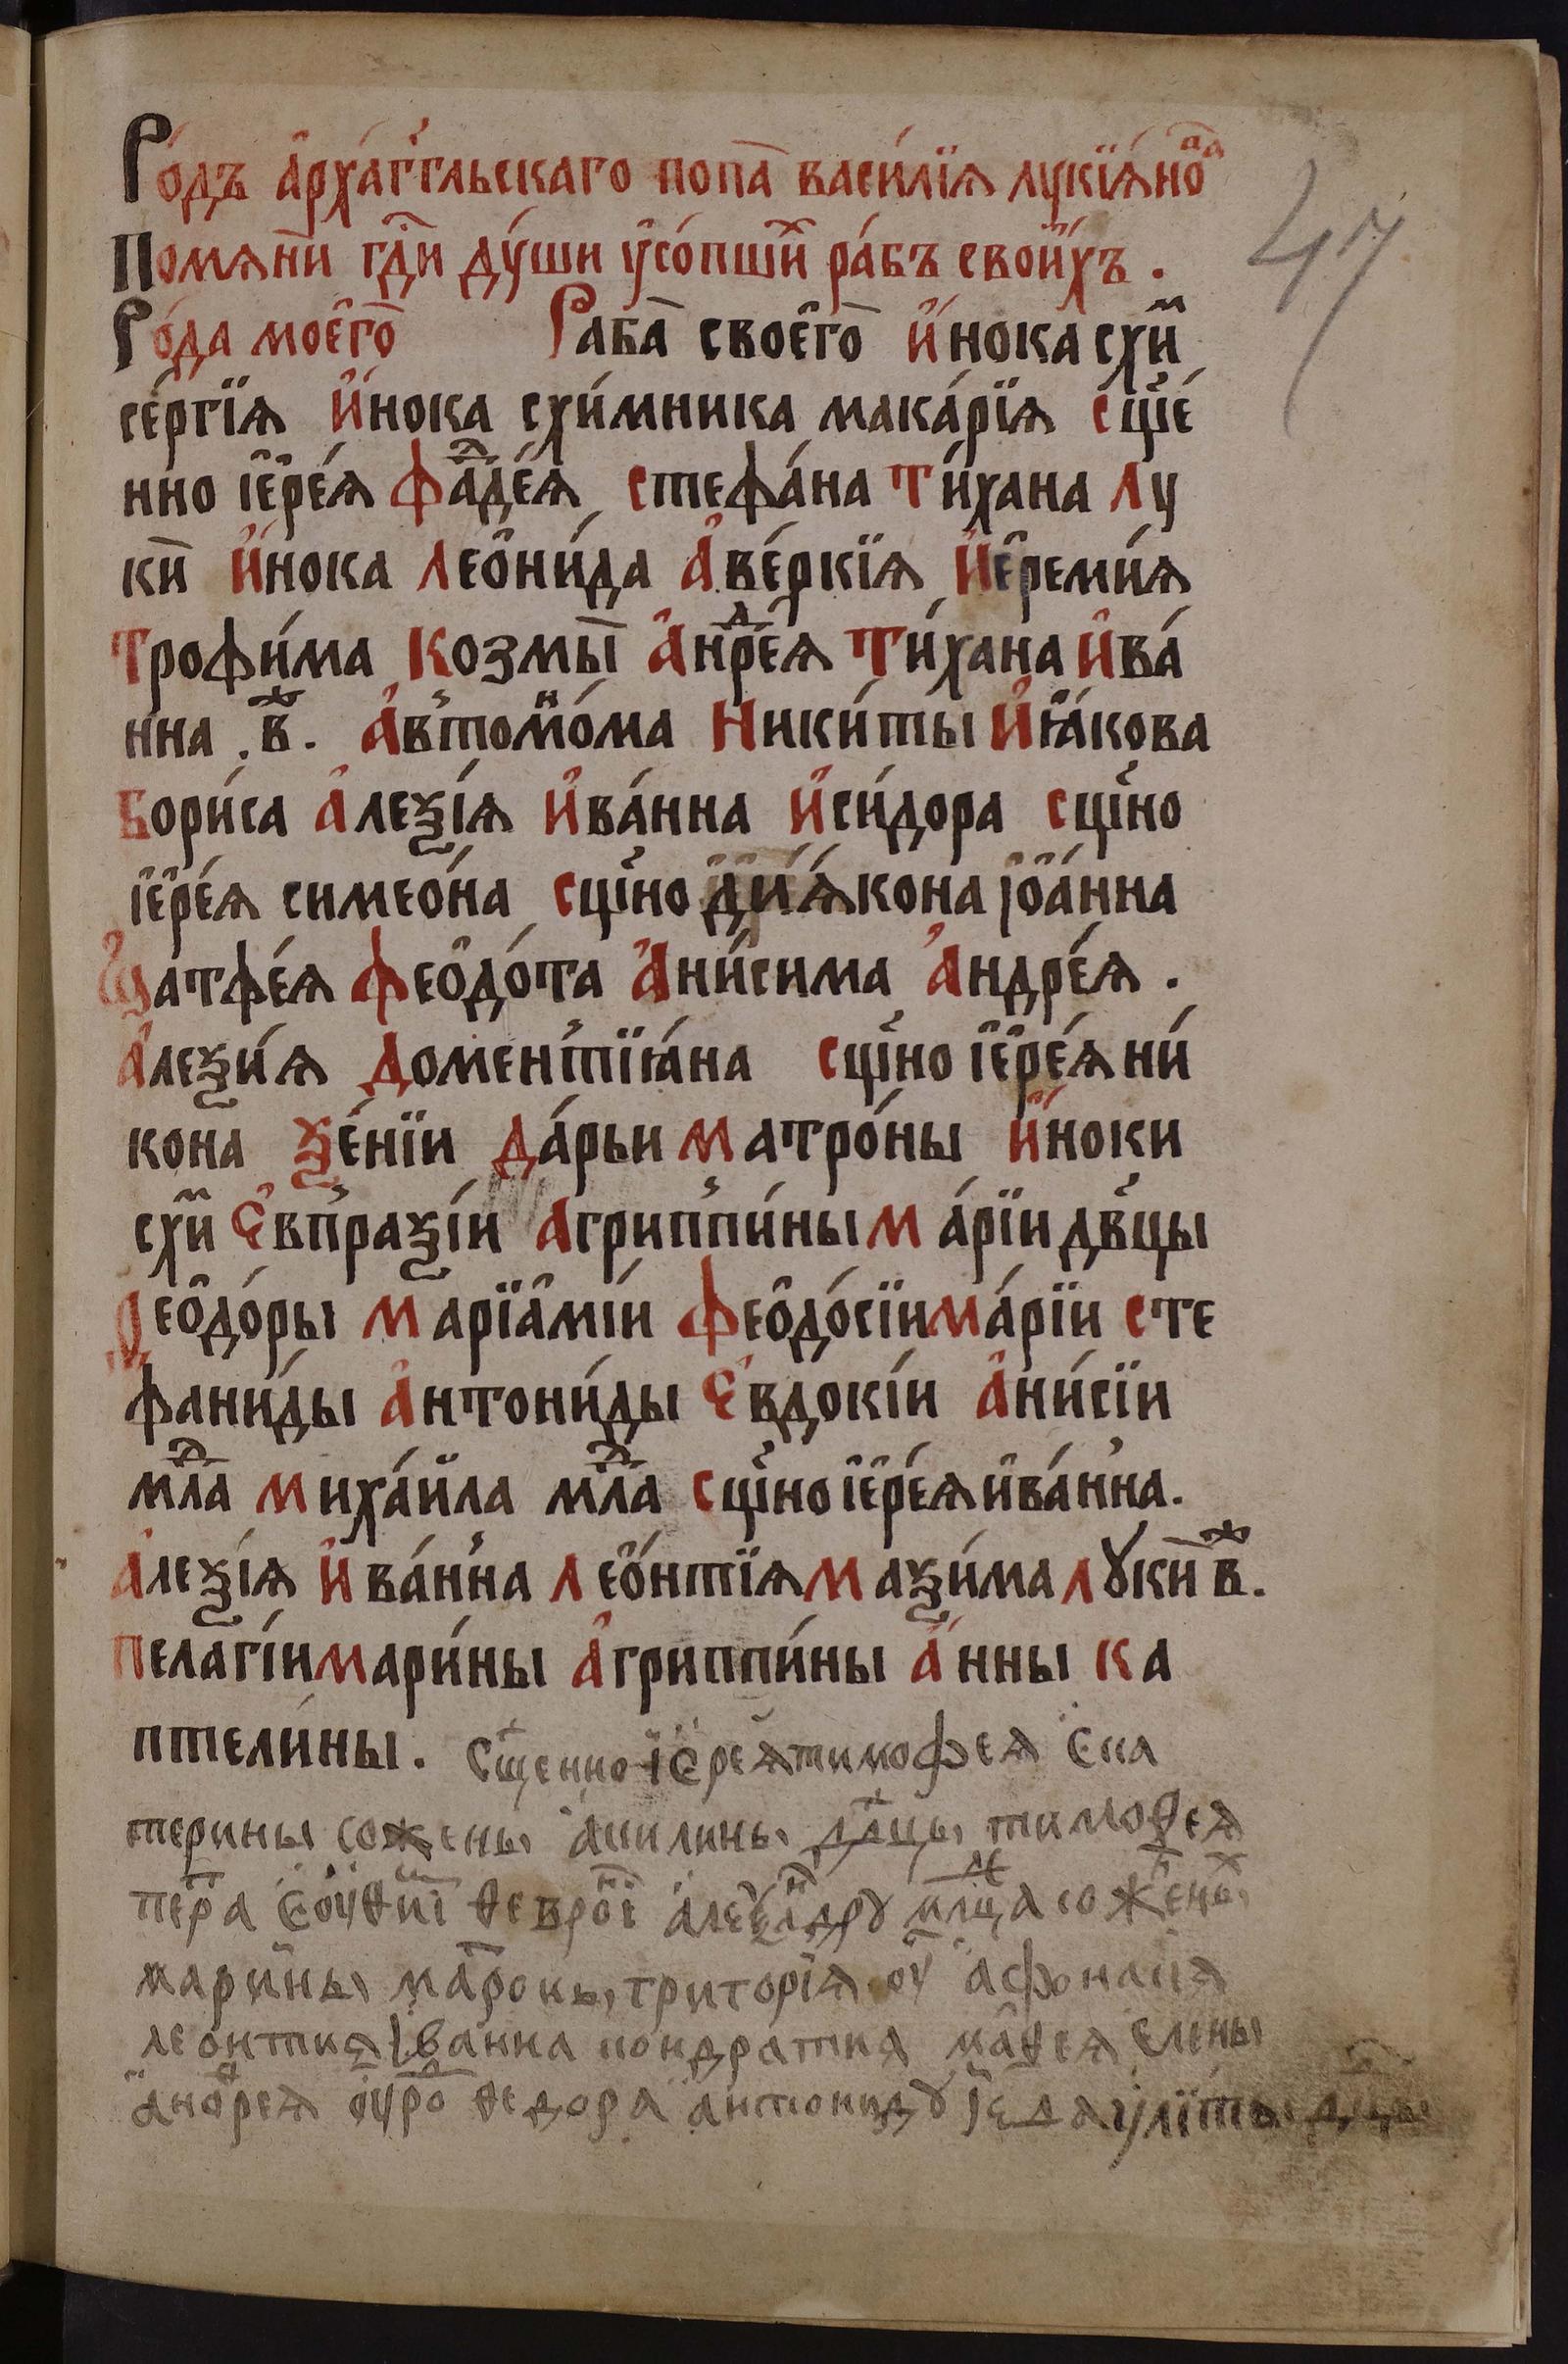 Ро́дъ а҆рха́гг҃льскаго попа̀ васи́лїѧ лꙋкїѧ́но
47
Помѧнѝ гд҃и дꙋ́ши ᲂу҆со́пшиⷯ ра́бъ свои́хъ .
Ро́да моегѡ̀ Раба̀ своегѡ̀ и҆́нока схиⷨ
се́ргїѧ и҆́нока схи́мника мака́рїѧ сщ҃е́
нно і҆ере́ѧ фаⷣде́ѧ стефа́на ти́хана лꙋ
кѝ и҆́нока леѻни́да а҆ве́ркїѧ и҆еремі́ѧ
трофи́ма козмы̀ а҆нⷣре́ѧ ти́хана и҆ва́
нна . в҃ . а҆втоⷩмо́ма ники́ты и҆ꙗ́кова
бори́са а҆леѯі́ѧ и҆ва́нна и҆си́дора сщ҃но
і҆ере́ѧ симео́на сщ҃но дїѧ́кона і҆ѻа́нна
матфе́ѧ феѻдо́та а҆ни́сима а҆ндре́ѧ .
а҆леѯи́ѧ доментїꙗ́на сщ҃но і҆ере́ѧ ни́
кона ѯе́нїи да́рьи матро́ны и҆́ноки
схиⷨ є҆впраѯі́и агриппи́ны ма́рїи дв҃цы
феѻдо́ры марїамі́и феѻдо́сїи ма́рїи сте
фани́ды а҆нтони́ды є҆вдокі́и а҆ни́сїи
млⷣа миха́ила млⷣа сщ҃но і҆ере́ѧ и҆ва́нна .
а҆леѯі́ѧ и҆ва́нна леѻ́нтїѧ маѯи́ма лꙋкѝ в҃ .
пелагі́и мари́ны а҆гриппи́ны а҆́нны ка
птели́ны . сщ҃енно і҆ереѧ тимофеѧ єка
терины со жены акилины дв҃цы тимоѳеѧ
петра ѳеврон́i алеѯандрꙋ млⷣца со жены
марины матроны григорїѧ афонасиѧ
леонтиѧ иванна кондратиѧ маѳеѧ єлены
андреѧ ѳедора антонидꙋ ꙋлиты